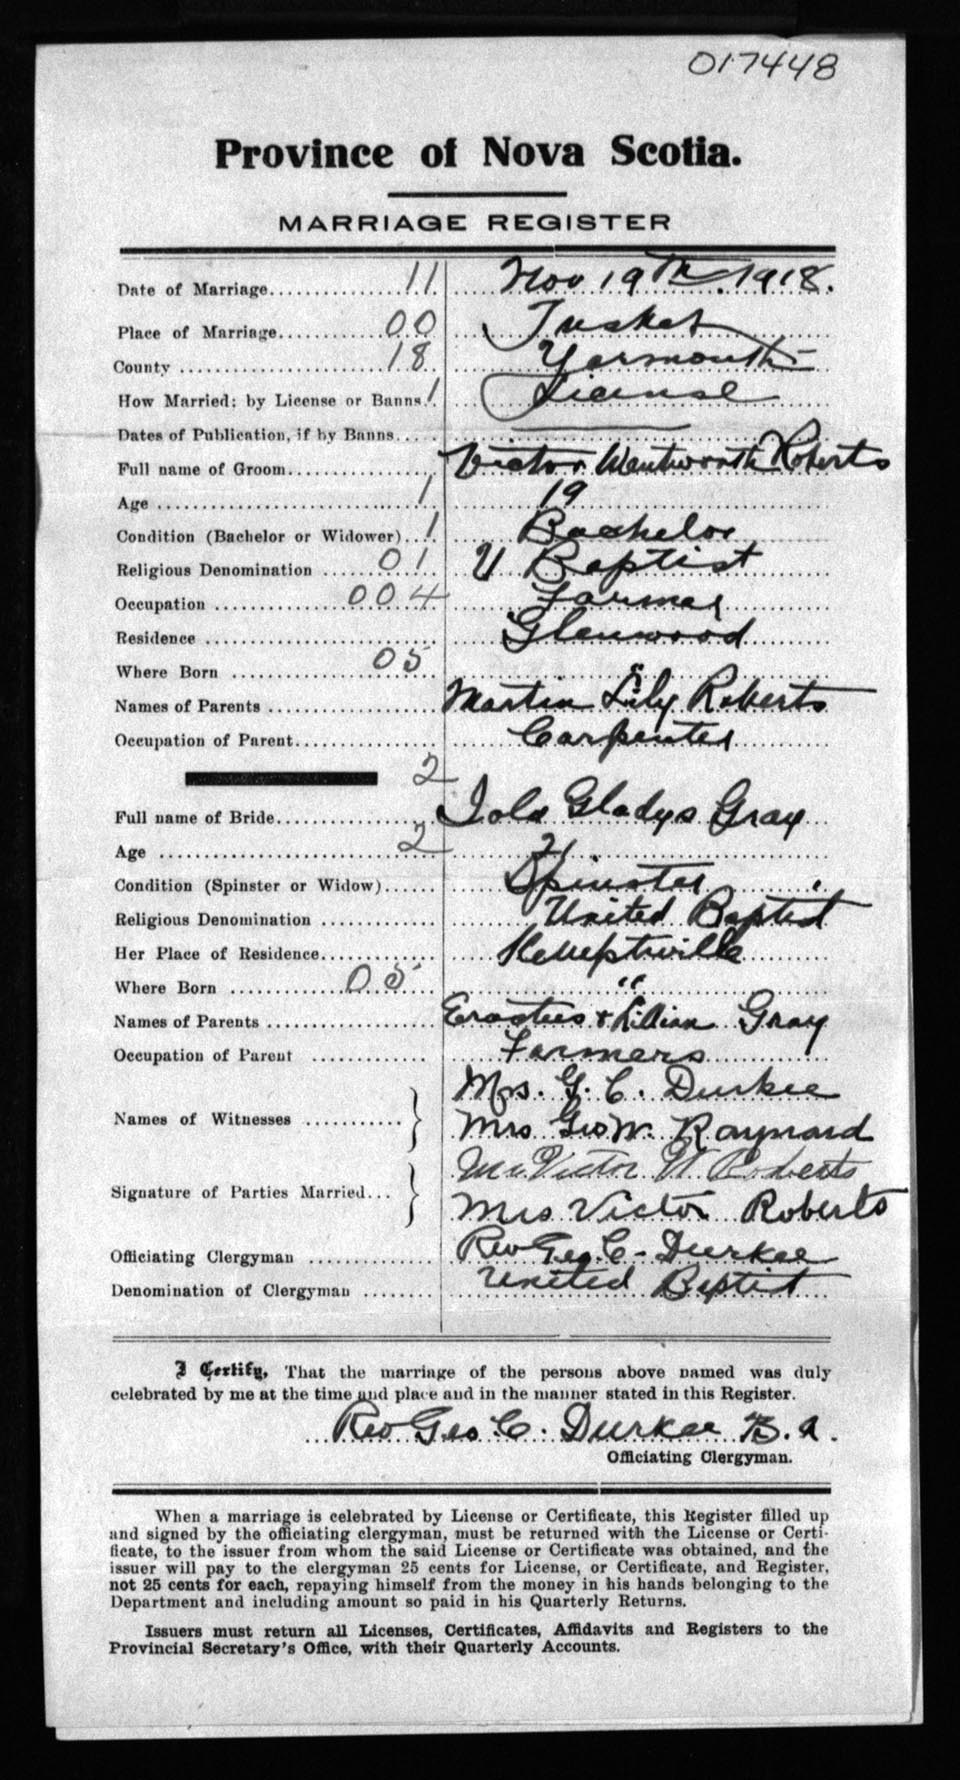 017448
Province of Nova Scotia.
MARRIAGE REGISTER
Date of Marriage 11 Nov 19th 1918.
Place of Marriage 00 Tusket
County 18 Yarmouth
How Married: by License or Banns 1 License
Dates of Publication, if by Banns
Full name of Groom Victor Wentworth Roberts
Age 1 19
Condition (Bachelor or Widower) 1 Bachelor
Religious Denomination 01 U Baptist
Occupation 004 Farmer
Residence Glenwood
Where Born 05 "
Names of Parents Martin Lily Roberts
Occupation of Parent Carpenter
2
Full name of Bride Iola Gladys Gray
Age 2 21
Condition (Spinster or Widow) Spinster
Religious Denomination United Baptist
Her Place of Residence Kemptville
Where Born 05 "
Names of Parents Erastus & Lillian Gray
Occupation of Parent Farmers
Names of Witnesses } Mrs. G. C. Durkee
Mrs Geo W. Raynard
Signature of Parties Married } Mr Victor W Roberts
Mrs Victor Roberts
Officiating Clergyman Rev Geo. C. Durkee
Denomination of Clergyman United Baptist
I Certify, That the marriage of the persons above named was duly
celebrated by me at the time and place and in the manner stated in this Register.
Rev Geo. C. Durkee B. A.
Officiating Clergyman.
When a marriage is celebrated by License or Certificate, this Register filled up
and signed by the officiating clergyman, must be returned with the License or Certi-
ficate, to the issuer from whom the said License or Certificate was obtained, and the
issuer will pay to the clergyman 25 cents for License, or Certificate, and Register,
not 25 cents for each, repaying himself from the money in his hands belonging to the
Department and including amount so paid in his Quarterly Returns.
Issuers must return all Licenses, Certificates, Affidavits and Registers to the
Provincial Secretary's Office, with their Quarterly Accounts.